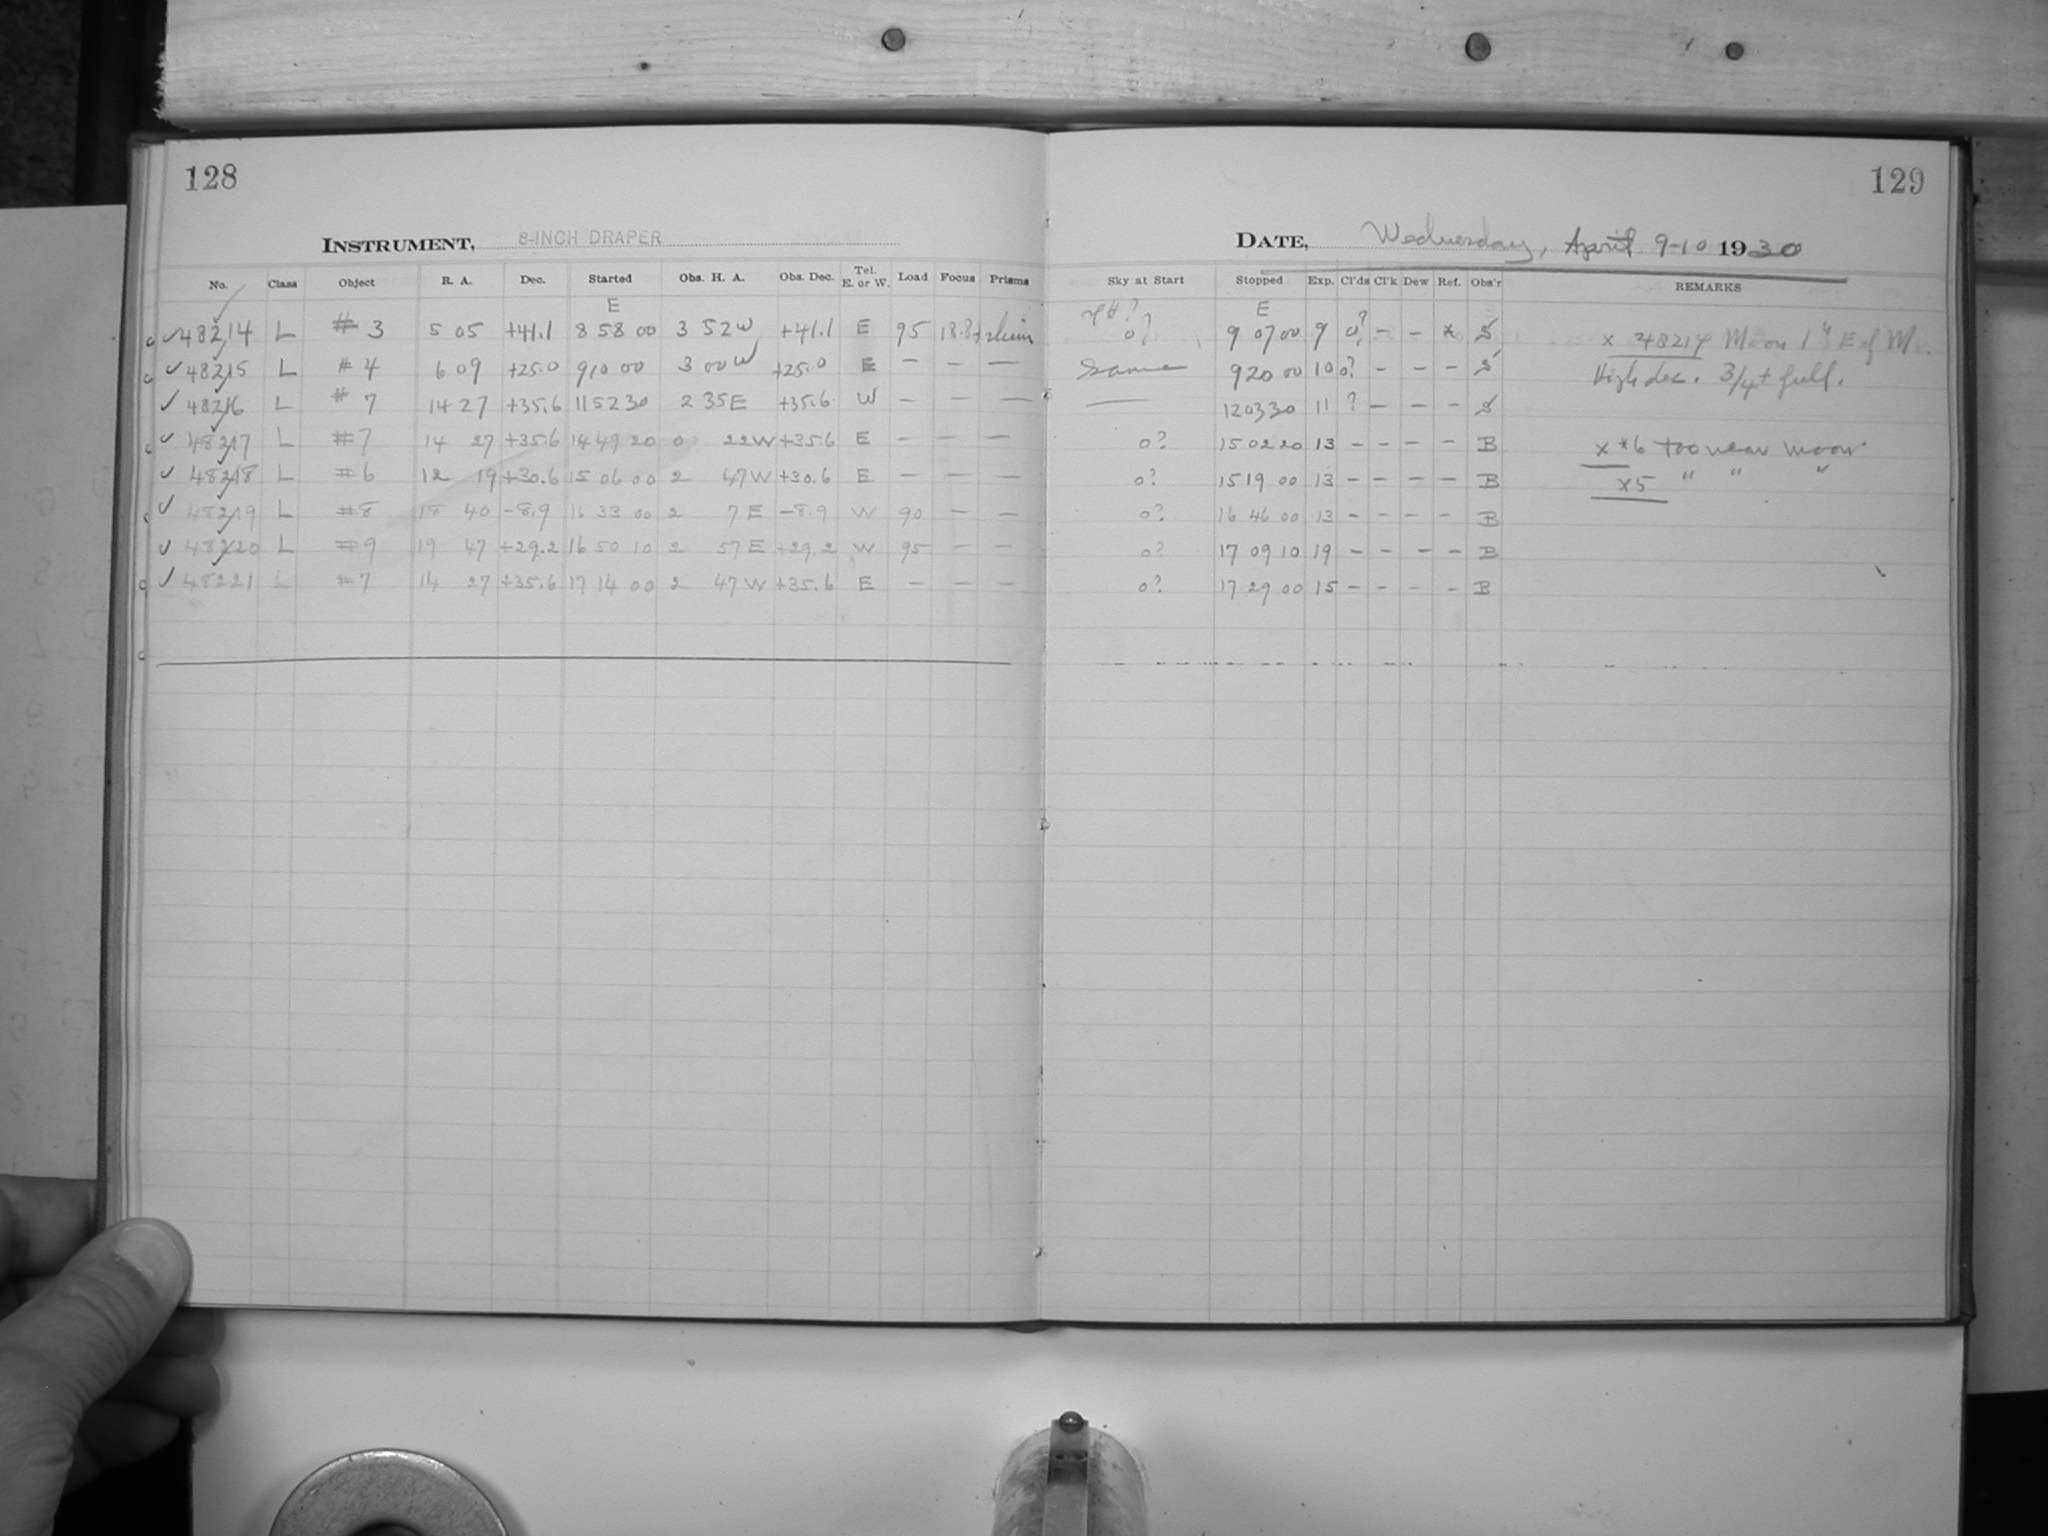 128
129
INSTRUMENT, 8-INCH DRAPER
DATE, Wednesday, April 9-10 1930
No. Class Object R. A. Dec. Started Obs. H. A. Obs. Dec. Tel. E. or W. Load Focus Prisms Sky at Start Stopped Exp. Cl'ds Cl'k Dew Ref. Obs'r REMARKS
E E
48214 L # 3 5 05 +41.1 8 58 00 3 52 W +41.1 E 95 0? 9 07 00 9 0? - - * S x 48214 Moon 1 E of
48215 L # 4 6 09 +25.0 9 10 00 3 00 W +25.0 E - - - Same 9 20 00 10 0? - - - S High dec. 3/4+ full.
48216 L # 7 14 27 +35.6 11 52 30 2 35 E +35.6 W - - - 12 03 30 11 ? - - - S
48217 L #7 14 27 +35.6 14 49 20 0 22 W +35.6 E - - - 0? 15 02 20 13 - - - - B x #6 too near moon
48218 L #6 12 19 +30.6 15 06 00 2 47 W +30.6 E - - - 0? 15 19 00 13 - - - - B x5 " " "
48219 L #8 18 40 -8.9 16 33 00 2 7 E -8.9 W 90 - - 0? 16 46 00 13 - - - - B
48220 L #9 19 47 +29.2 16 50 10 2 57 E +29.2 W 95 - - 0? 17 09 10 19 - - - - B
48221 L #7 14 27 +35.6 17 14 00 2 47 W +35.6 E - - - 0? 17 29 00 15 - - - - B